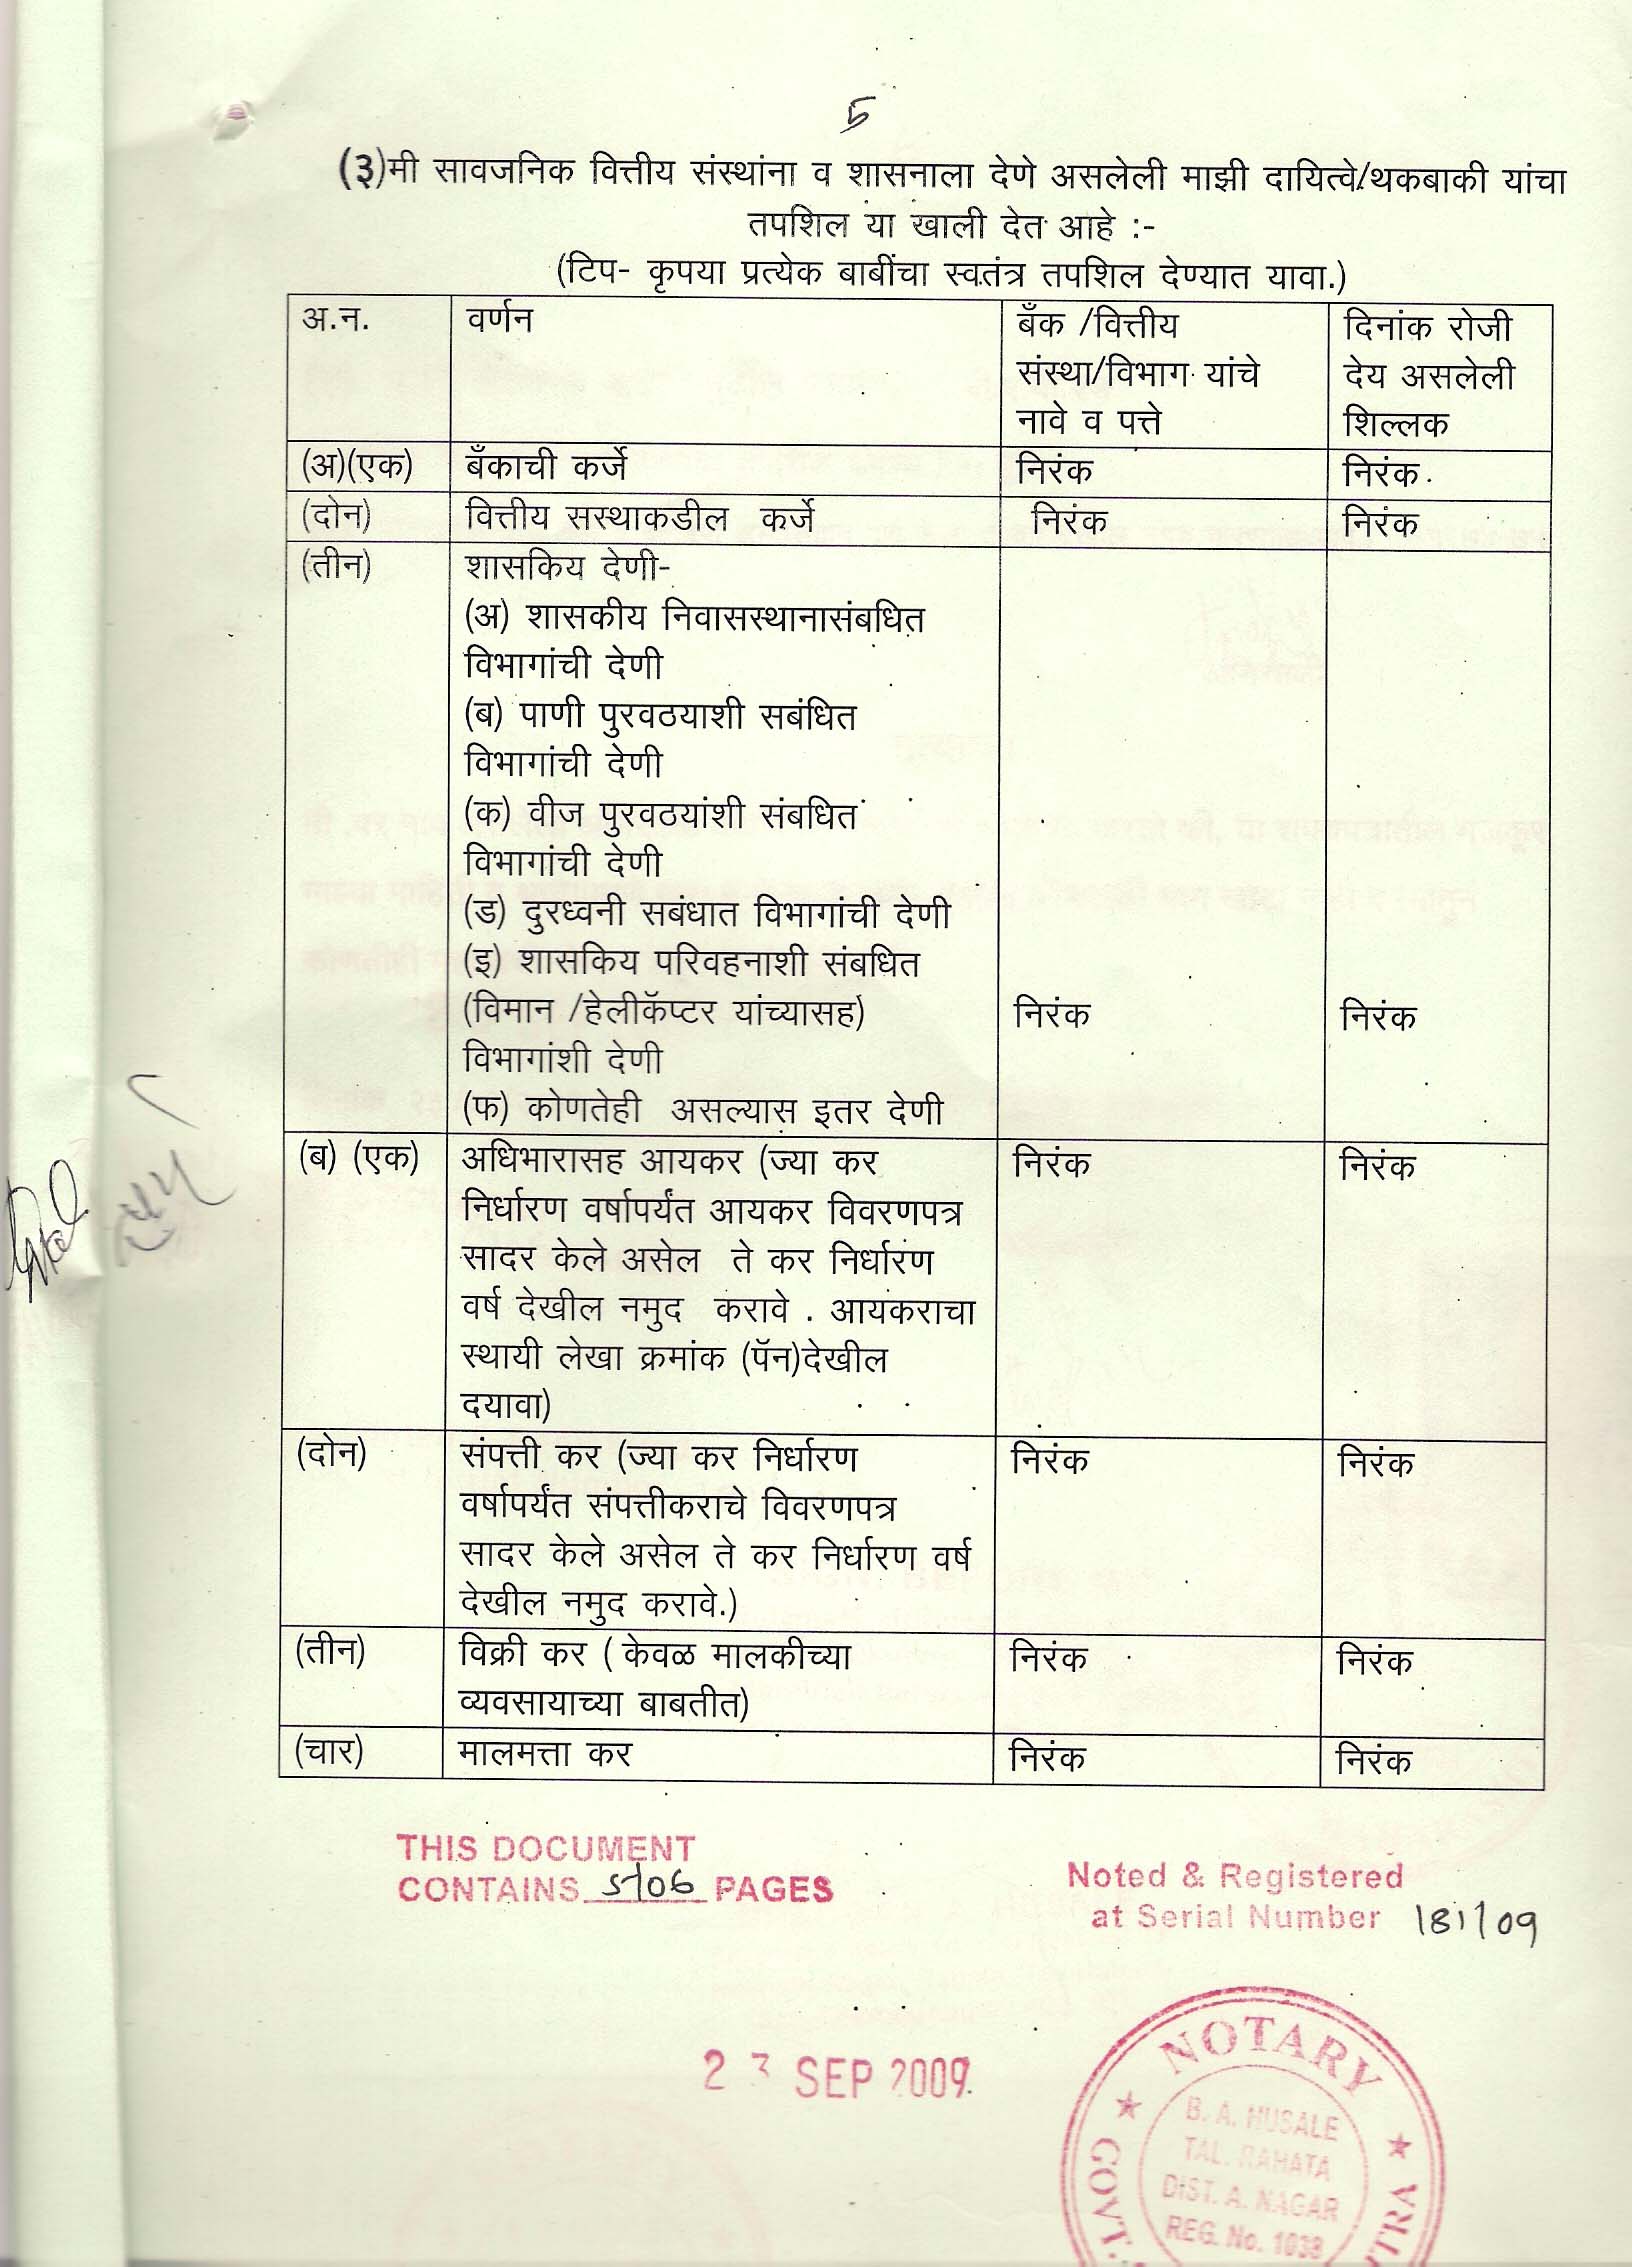 5
(३)मी सावजनिक वित्तीय संस्थांना व शासनाला देणे असलेली माझी दायित्वे/थकबाकी यांचा
तपशिल या खाली देत आहे :-
(टिप- कृपया प्रत्येक बाबींचा स्वतंत्र तपशिल देण्यात यावा.)
अ.न. वर्णन बँक /वित्तीय दिनांक रोजी
संस्था/विभाग यांचे देय असलेली
नावे व पत्ते शिल्लक
(अ)(एक) बँकाची कर्जे निरंक निरंक
(दोन) वित्तीय सस्थाकडील कर्जे निरंक निरंक
(तीन) शासकिय देणी-
(अ) शासकीय निवासस्थानासंबधित
विभागांची देणी
(ब) पाणी पुरवठयाशी सबंधित
विभागांची देणी
(क) वीज पुरवठयांशी संबधित
विभागांची देणी
(ड) दुरध्वनी सबंधात विभागांची देणी
(इ) शासकिय परिवहनाशी संबधित
(विमान /हेलीकॅप्टर यांच्यासह) निरंक निरंक
विभागांशी देणी
(फ) कोणतेही असल्यास इतर देणी
(ब) (एक) अधिभारासह आयकर (ज्या कर निरंक निरंक
निर्धारण वर्षापर्यंत आयकर विवरणपत्र
सादर केले असेल ते कर निर्धारण
वर्ष देखील नमुद करावे . आयकराचा
स्थायी लेखा क्रमांक (पॅन)देखील
दयावा)
(दोन) संपत्ती कर (ज्या कर निर्धारण निरंक निरंक
वर्षापर्यंत संपत्तीकराचे विवरणपत्र
सादर केले असेल ते कर निर्धारण वर्ष
देखील नमुद करावे.)
(तीन) विक्री कर ( केवळ मालकीच्या निरंक निरंक
व्यवसायाच्या बाबतीत)
(चार) मालमत्ता कर निरंक निरंक
THIS DOCUMENT
CONTAINS 5/06 PAGES
Noted & Registered
at Serial Number 181/09
23 SEP 2009
NOTARY
B. A. HUSALE
TAL. RAHATA
DIST. A. NAGAR
REG. No. 1038
GOVT.